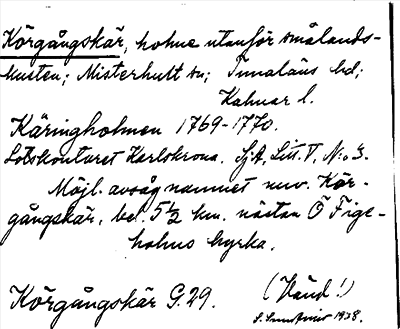 Körgångskär, holme utanför smålands-
kusten; Misterhult sn; Tunaläns hd;
Kalmar l.
Käringholmen 1769-1770.
Lotskontoret Karlskrona. Sj.A. Litt. V, N:o 3.
Möjl. avsåg namnet nuv. Kör-
gångskär, bel. 5½ km. nästan Ö Fige-
holms kyrka.
Körgångskär G.29.
(Vänd!)
1938.